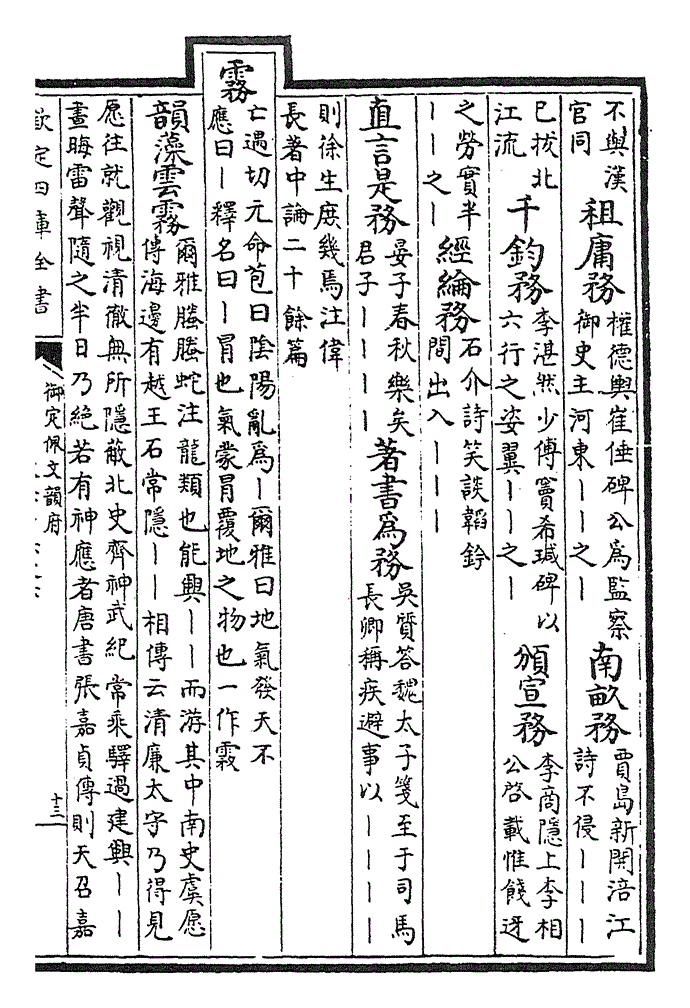 不與漢
官同
租庸務
權德輿崔倕碑公爲監察
御史主河東丨丨之丨
南畝務
賈島新開涪江
詩不侵丨丨丨
已拔北
江流
千鈞務
李湛然少傅竇希瑊碑以
六行之姿翼丨丨之丨
頒宣務
李商隱上李相
公啓載惟餞迓
之勞實半
丨丨之丨
經綸務
石介詩笑談韜鈐
間出入丨丨丨
直言是務
晏子春秋樂矣
君子丨丨丨丨
著書爲務
吳質答魏太子箋至于司馬
長卿稱疾避事以丨丨丨丨
則徐生庶幾焉注偉
長著中論二十餘篇
霧
亡遇切元命苞曰陰陽亂爲丨爾雅曰地氣發天不
應曰丨釋名曰丨冒也氣蒙冒覆地之物也一作霚
韻藻雲霧
爾雅螣螣蛇注龍類也能興丨丨而游其中南史虞愿
傳海邊有越王石常隱丨丨相傳云清廉太守乃得見
愿往就觀視清徹無所隱蔽北史齊神武紀常乘驛過建興丨丨
晝晦雷聲隨之半日乃絕若有神應者唐書張嘉貞傳則天召嘉
欽定四庫全書
御定佩文韻府
十三